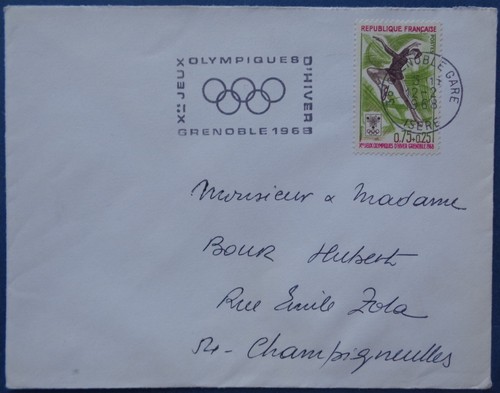 Xes JEUX OLYMPIQUES D'HIVER
GRENOBLE 1968
REPUBLIQUE FRANÇAISE
POSTES
0,75+0,25
Xes JEUX OLYMPIQUES D'HIVER GRENOBLE 1968
GRENOBLE GARE
ISERE
Monsieur & Madame
BOUR Hubert
Rue Emile Zola
54 - Champigneulles